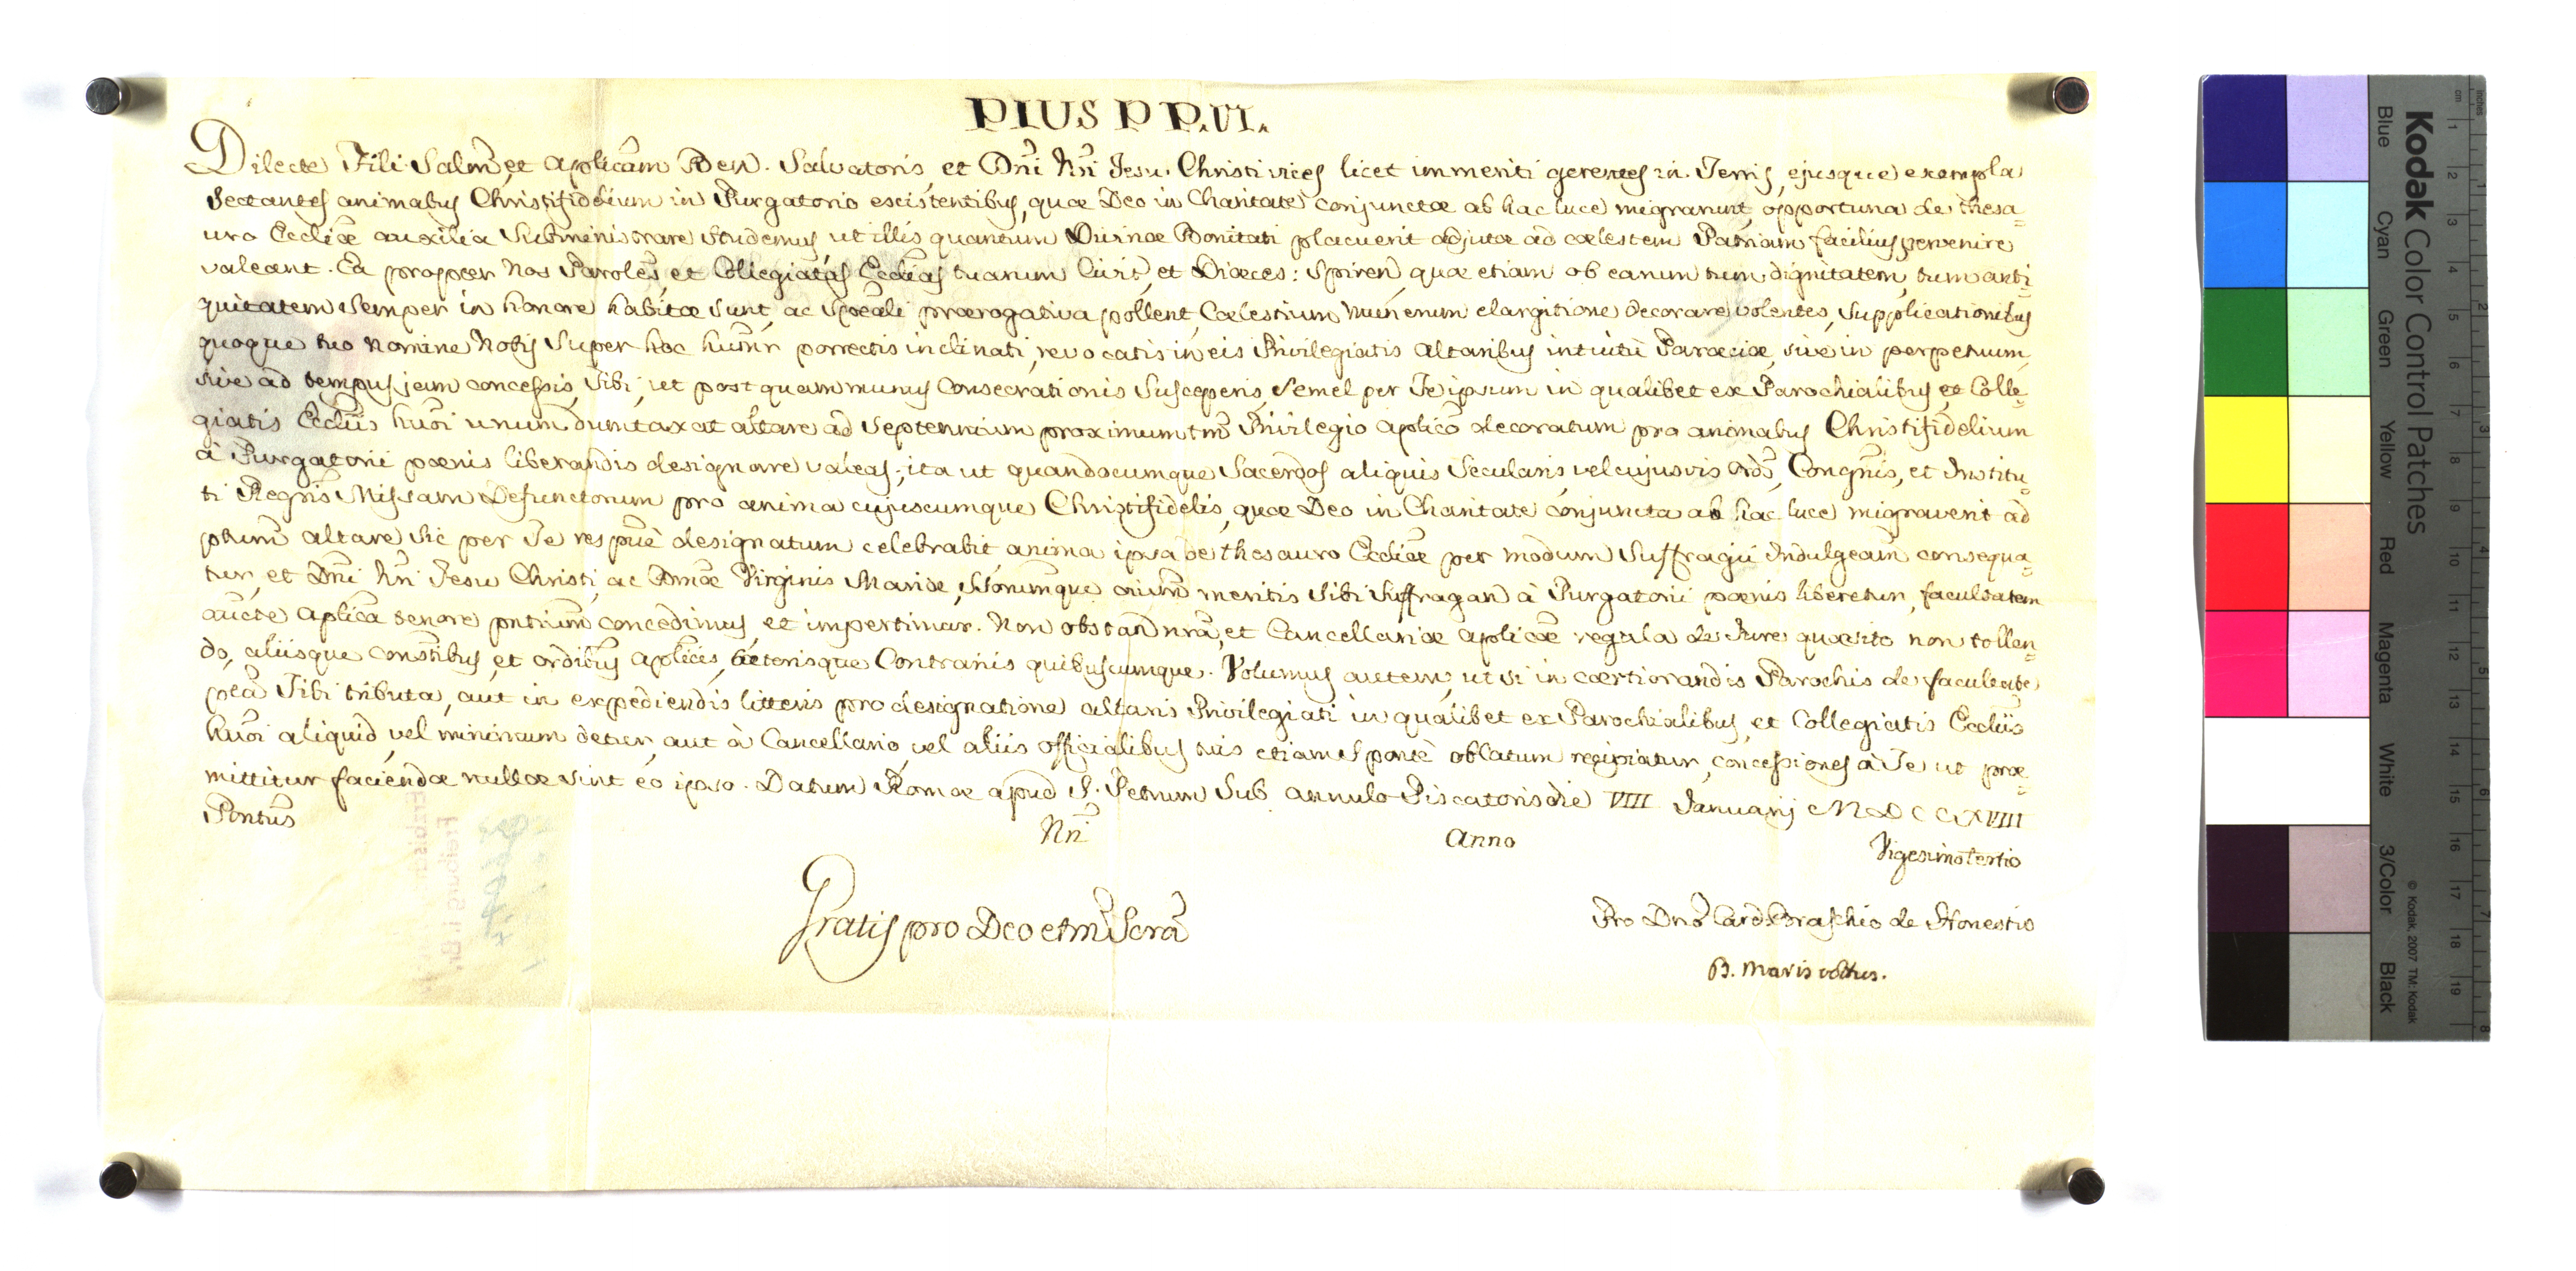 PIUS PP. VI.
Dilecte Fili Salm̃, et Aplicam Ben. Salvatoris, et Dñi Nri Jesu Christi vices licet immeriti gerentes in Terris, ejusque exempla
sectantes animabus Christifidelium in Purgatorio existentibus, quæ Deo in Charitate conjunctæ ab hac luce migrarunt, opportuna de thesa=
uro Eccliæ auxilia subministrare studemus, ut illis quantum Divinæ Bonitati placuerit adjutæ ad cælestem Patriam facilius pervenire
valeant. Ea propter Nos Paroles, et Collegiatas Ecclias tuarum Civit, et Diœces: Spiren, quæ etiam ob earum tum dignitatem, tum anti=
quitatem semper in honore habitæ sunt, ac spĕali prærogativa pollent, Cælestium munerum elargitione decorare volentes, supplicationibus
quoque tuo nomine Nobis super hoc humr porrectis inclinati, revocatis in eis Privilegiatis Altaribus intuitu Parœciæ, sive in perpetuum,
sive ad tempus jam concessis, Tibi, ut postquam munus Consecrationis susceperis, semel per Te ipsum in qualibet ex Parochialibus, et Colle=
giatis Eccliis hum̃oi unum dumtaxat altare ad septennium proximum tm̃ Privilegio aplico decoratum pro animabus Christifidelium
à Purgatorii pœnis liberandis designare valeas; ita ut quandocumque Sacerdos aliquis Secularis, vel cujusvis Ordis, Congnis, et Institu=
ti Regris Missam Defunctorum pro anima cujuscumque Christifidelis, quæ Deo in Charitate conjuncta ab hac luce migraverit ad
ptum altare sic per Te respve designatum celebrabit anima ipsa de thesauro Ecclæ per modum suffragii Indulgeam consequa=
tur, et Dñi Nri Jesu Christi, ac Bmæ Virginis Mariæ, Storumque oium meritis sibi suffragan à Purgatorii pœnis liberetur, facultatem
aucte Aplica tenore pntium concedimus, et impertimur. Non obstan nra, et Cancellariæ aplicæ regula de Jure quæsito non tollen=
do, aliisque constibus, et ordibus aplicis, cæterisque Contrariis quibuscumque. Volumus autem, ut si in certiorandis Parochis de facultate
pta Tibi tributa, aut in expediendis litteris pro designatione altaris Privilegiati in qualibet ex Parochialibus, et Collegiatis Eccliis
hum̃oi aliquid, vel minimum detur, aut à Cancellario, vel aliis officialibus tuis etiam sponte oblatum recipiatur, concessiones à Te ut præ=
mittitur faciendæ nullæ sint eo ipso. Datum Romæ apud S. Petrum sub annulo Piscatoris die VIIII Januarij MDCCLXVIII
Pontus Nri Anno Vigesimotertio
Gratis pro Deo et m̃ Scra
Pro Dno Card. Braschio de Honestis
B. Mariscottus.
Kodak Color Control Patches
Blue Cyan Green Yellow Red Magenta White 3/Color Black
© Kodak, 2007 TM: Kodak
cm 1 2 3 4 5 6 7 8 9 10 11 12 13 14 15 16 17 18 19
inches 1 2 3 4 5 6 7 8